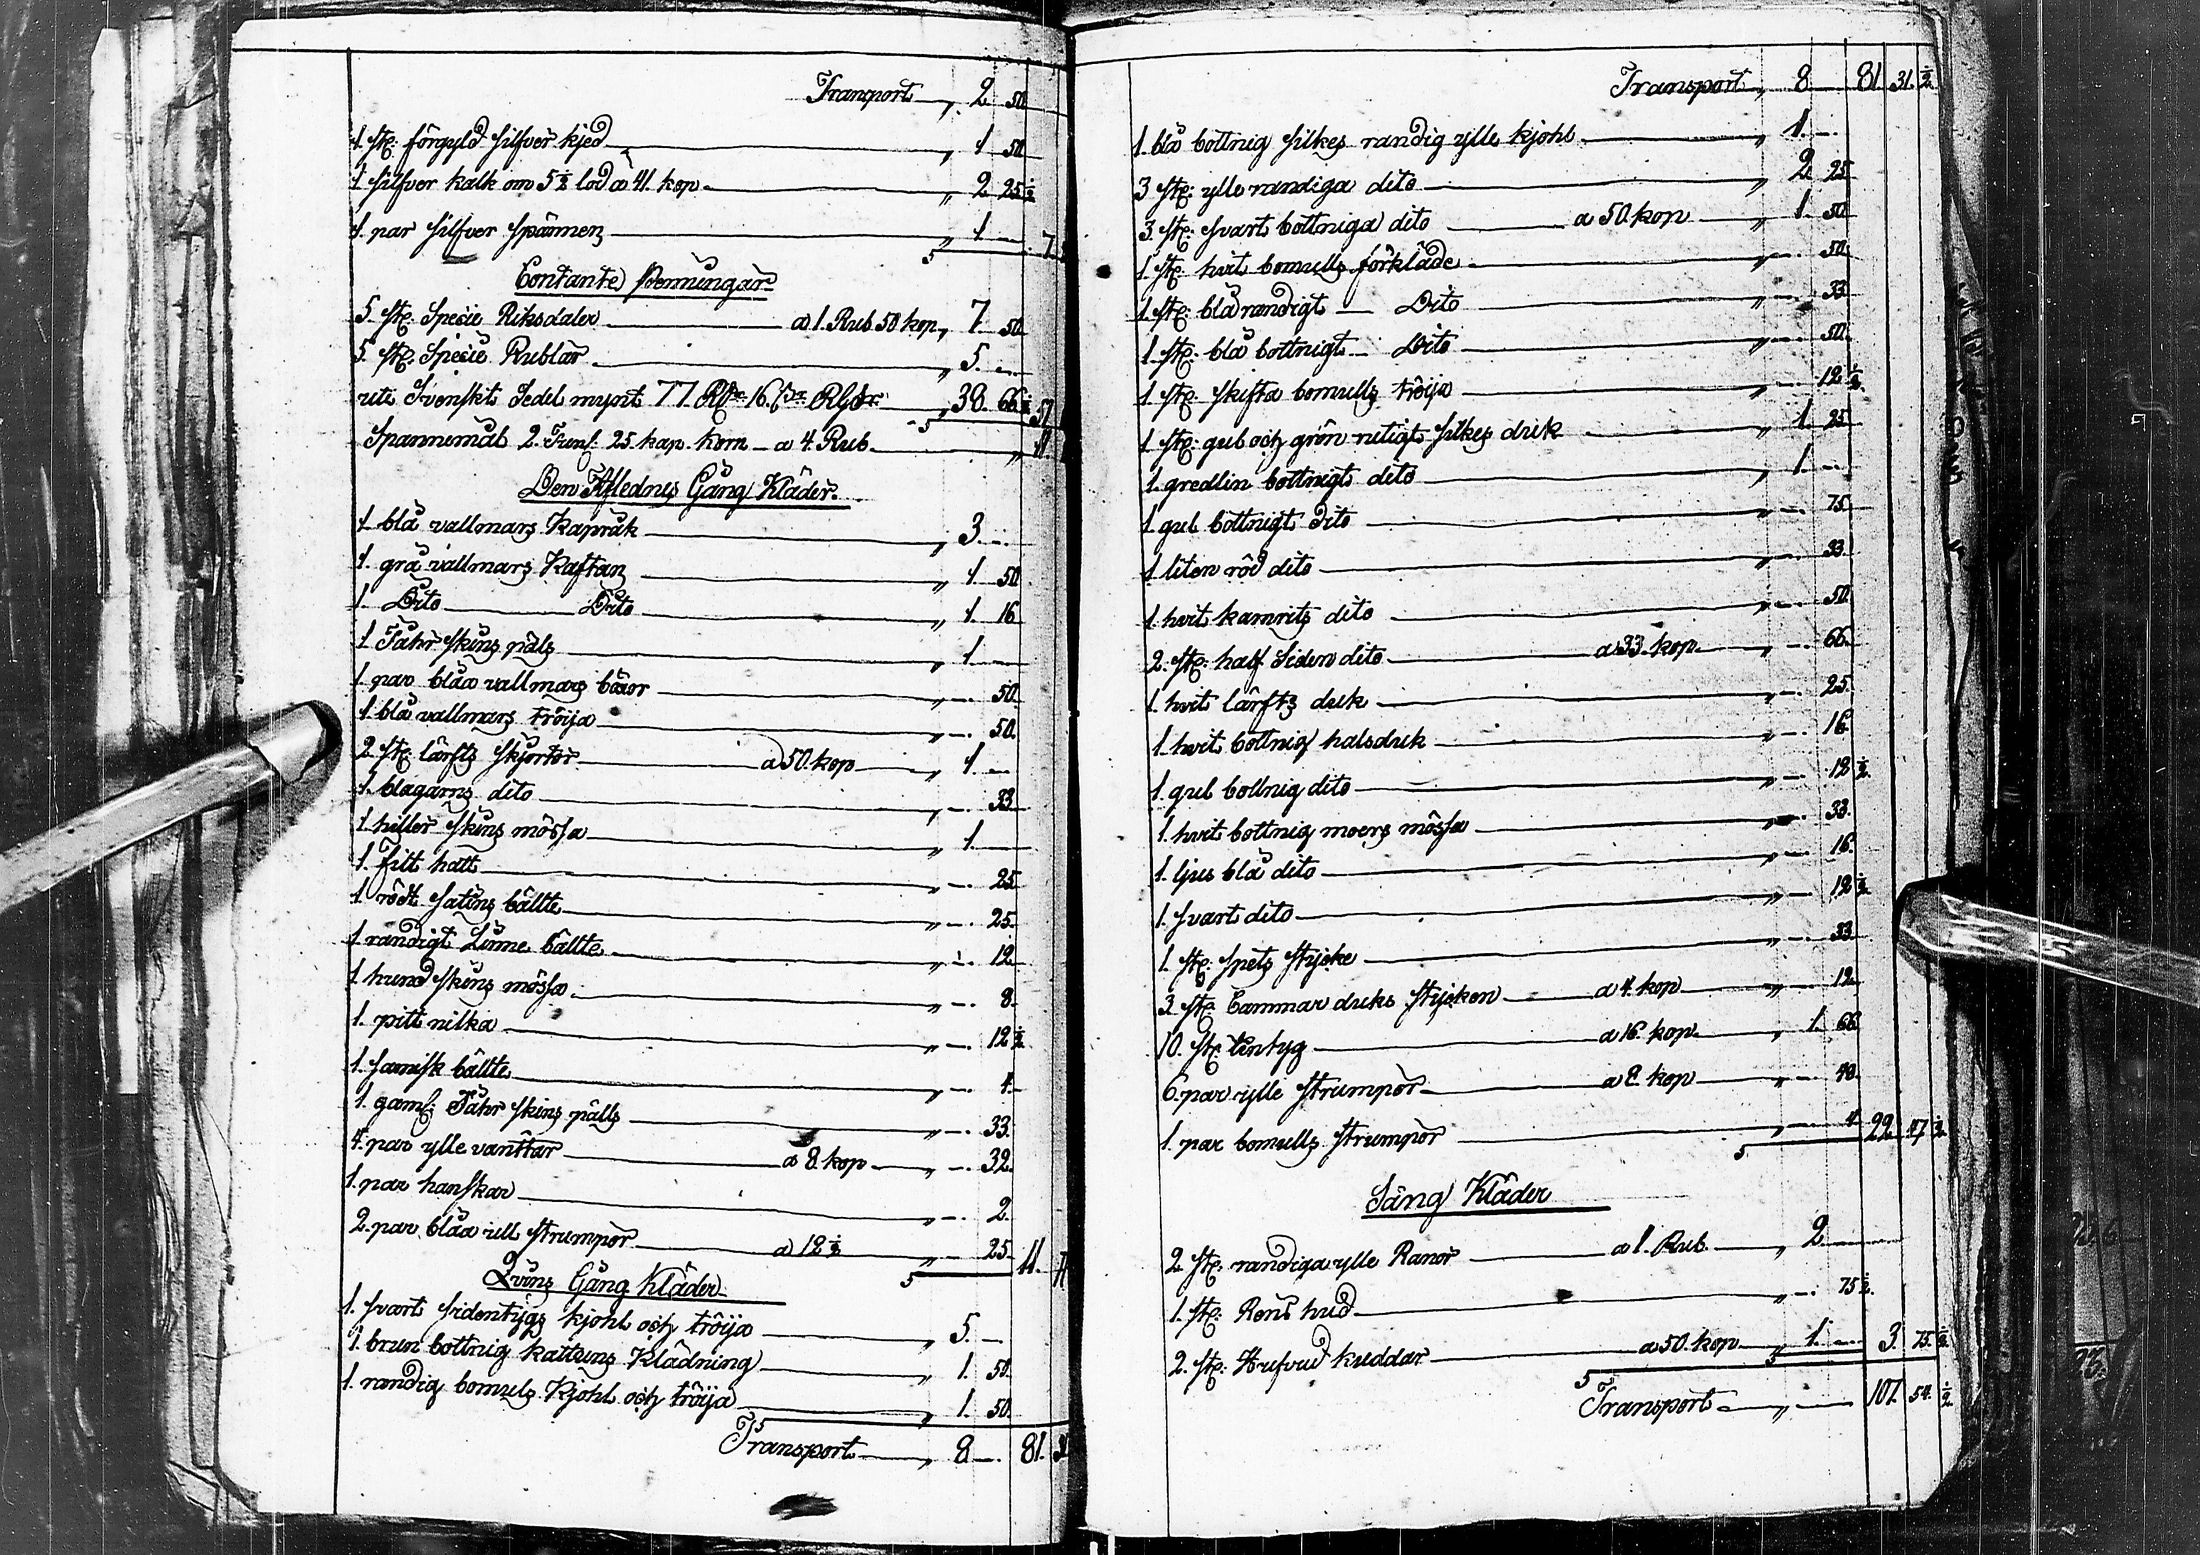 Transport " 2 50
1 st: förgyld silfver kjed " 1 50
1 silfver kalk om 5½ lod a 41. kop. " 2 25½
1. par silfver spännen " 1 — 7
Contante penningar
5. st: Specie Riksdaler a 1. Rub. 50 kop " 7 50
5. st: Specie Rublar " 5. —
uti Svenskt Sedel mynt 77. 16. " 38. 66½ 57
Spannemål 2. Tun: 25 kap. korn — a 4. Rub. "
Den Aflednes Gång Kläder.
1. blå vallmars Kapråk " 3. —
1. grå vallmars Kaftan " 1 50
1. Dito Dito " 1. 16
1 Fåhr skins päls " 1 —
1. par blåa vallmars böxor " — 50.
1. blå vallmars tröija " — 50.
2. st: lärfts skjortor a 50. kop " 1 —
1. blagarns dito " — 33
1. hiller skins mössa " 1. —
1. Filt hatt " — 25
1 rödt satins bällte " — 25.
1 randigt Linne bällte " — 12
1. hund skins mössa " — 8.
1. pitt nilka " — 12½
1. samisk bällte " — 4.
1. gaml: Fåhr skins pälls " — 33.
4. par ylle vanttar a 8. kop " — 32.
1. par hanskar " — 2.
2. par blåa ull strumpor a 12½ " — 25 11.
Qvins Gång Kläder
1. svart sidentygs kjohl och tröija " 5. —
1. brun bottnig kattuns Klädning " 1. 50.
1. randig bomuls Kjohl och tröija " 1. 50.
Transport " 8 — 81.
Transport " 8 — 81 31.½
1. blå bottnig silkes randig ylle kjohl " 1. —
3 st: ylle randiga dito " 2 25
3. st: svart bottniga dito a 50. kop " 1. 50
1 st: hvit bomulls förkläde " — 50.
1 st: blå randigt — Dito " — 33
1 st: blå bottnigt — Dito " — 50.
1 st: skifta bomulls tröija " — 12½
1 st: gul och grön rutigt silkes duk " 1. 25
1. gredlin bottnigt dito " 1. —
1. gul bottnigt dito " — 75
1 liten röd dito " — 33.
1. hvit kamrits dito " — 50.
2. st: half Siden dito a 33. kop. " — 66.
1. hvit lärfts duk " — 25.
1. hvit bottnig halsduk " — 16.
1. gul bottnig dito " — 12½
1. hvit bottnig moers mössa " — 33.
1. ljus blå dito " — 16.
1. svart dito " — 12½
1. st: spets stycke " — 33
3 st: Cammar duks stycken a 4. kop " — 12.
10. st: lintyg a 16. kop. " 1. 66
6. par ylle strumpor a 8. kop " — 48.
1. par bomulls strumpor " — 4 22 47½
Säng Kläder
2 st: randiga ylle Ranor a 1. Rub. " 2. —
1. st: Rens hud " — 75½
2. st: Hufvud kuddar a 50. kop " 1. — 3. 75.½
Transport " — 107. 54.½